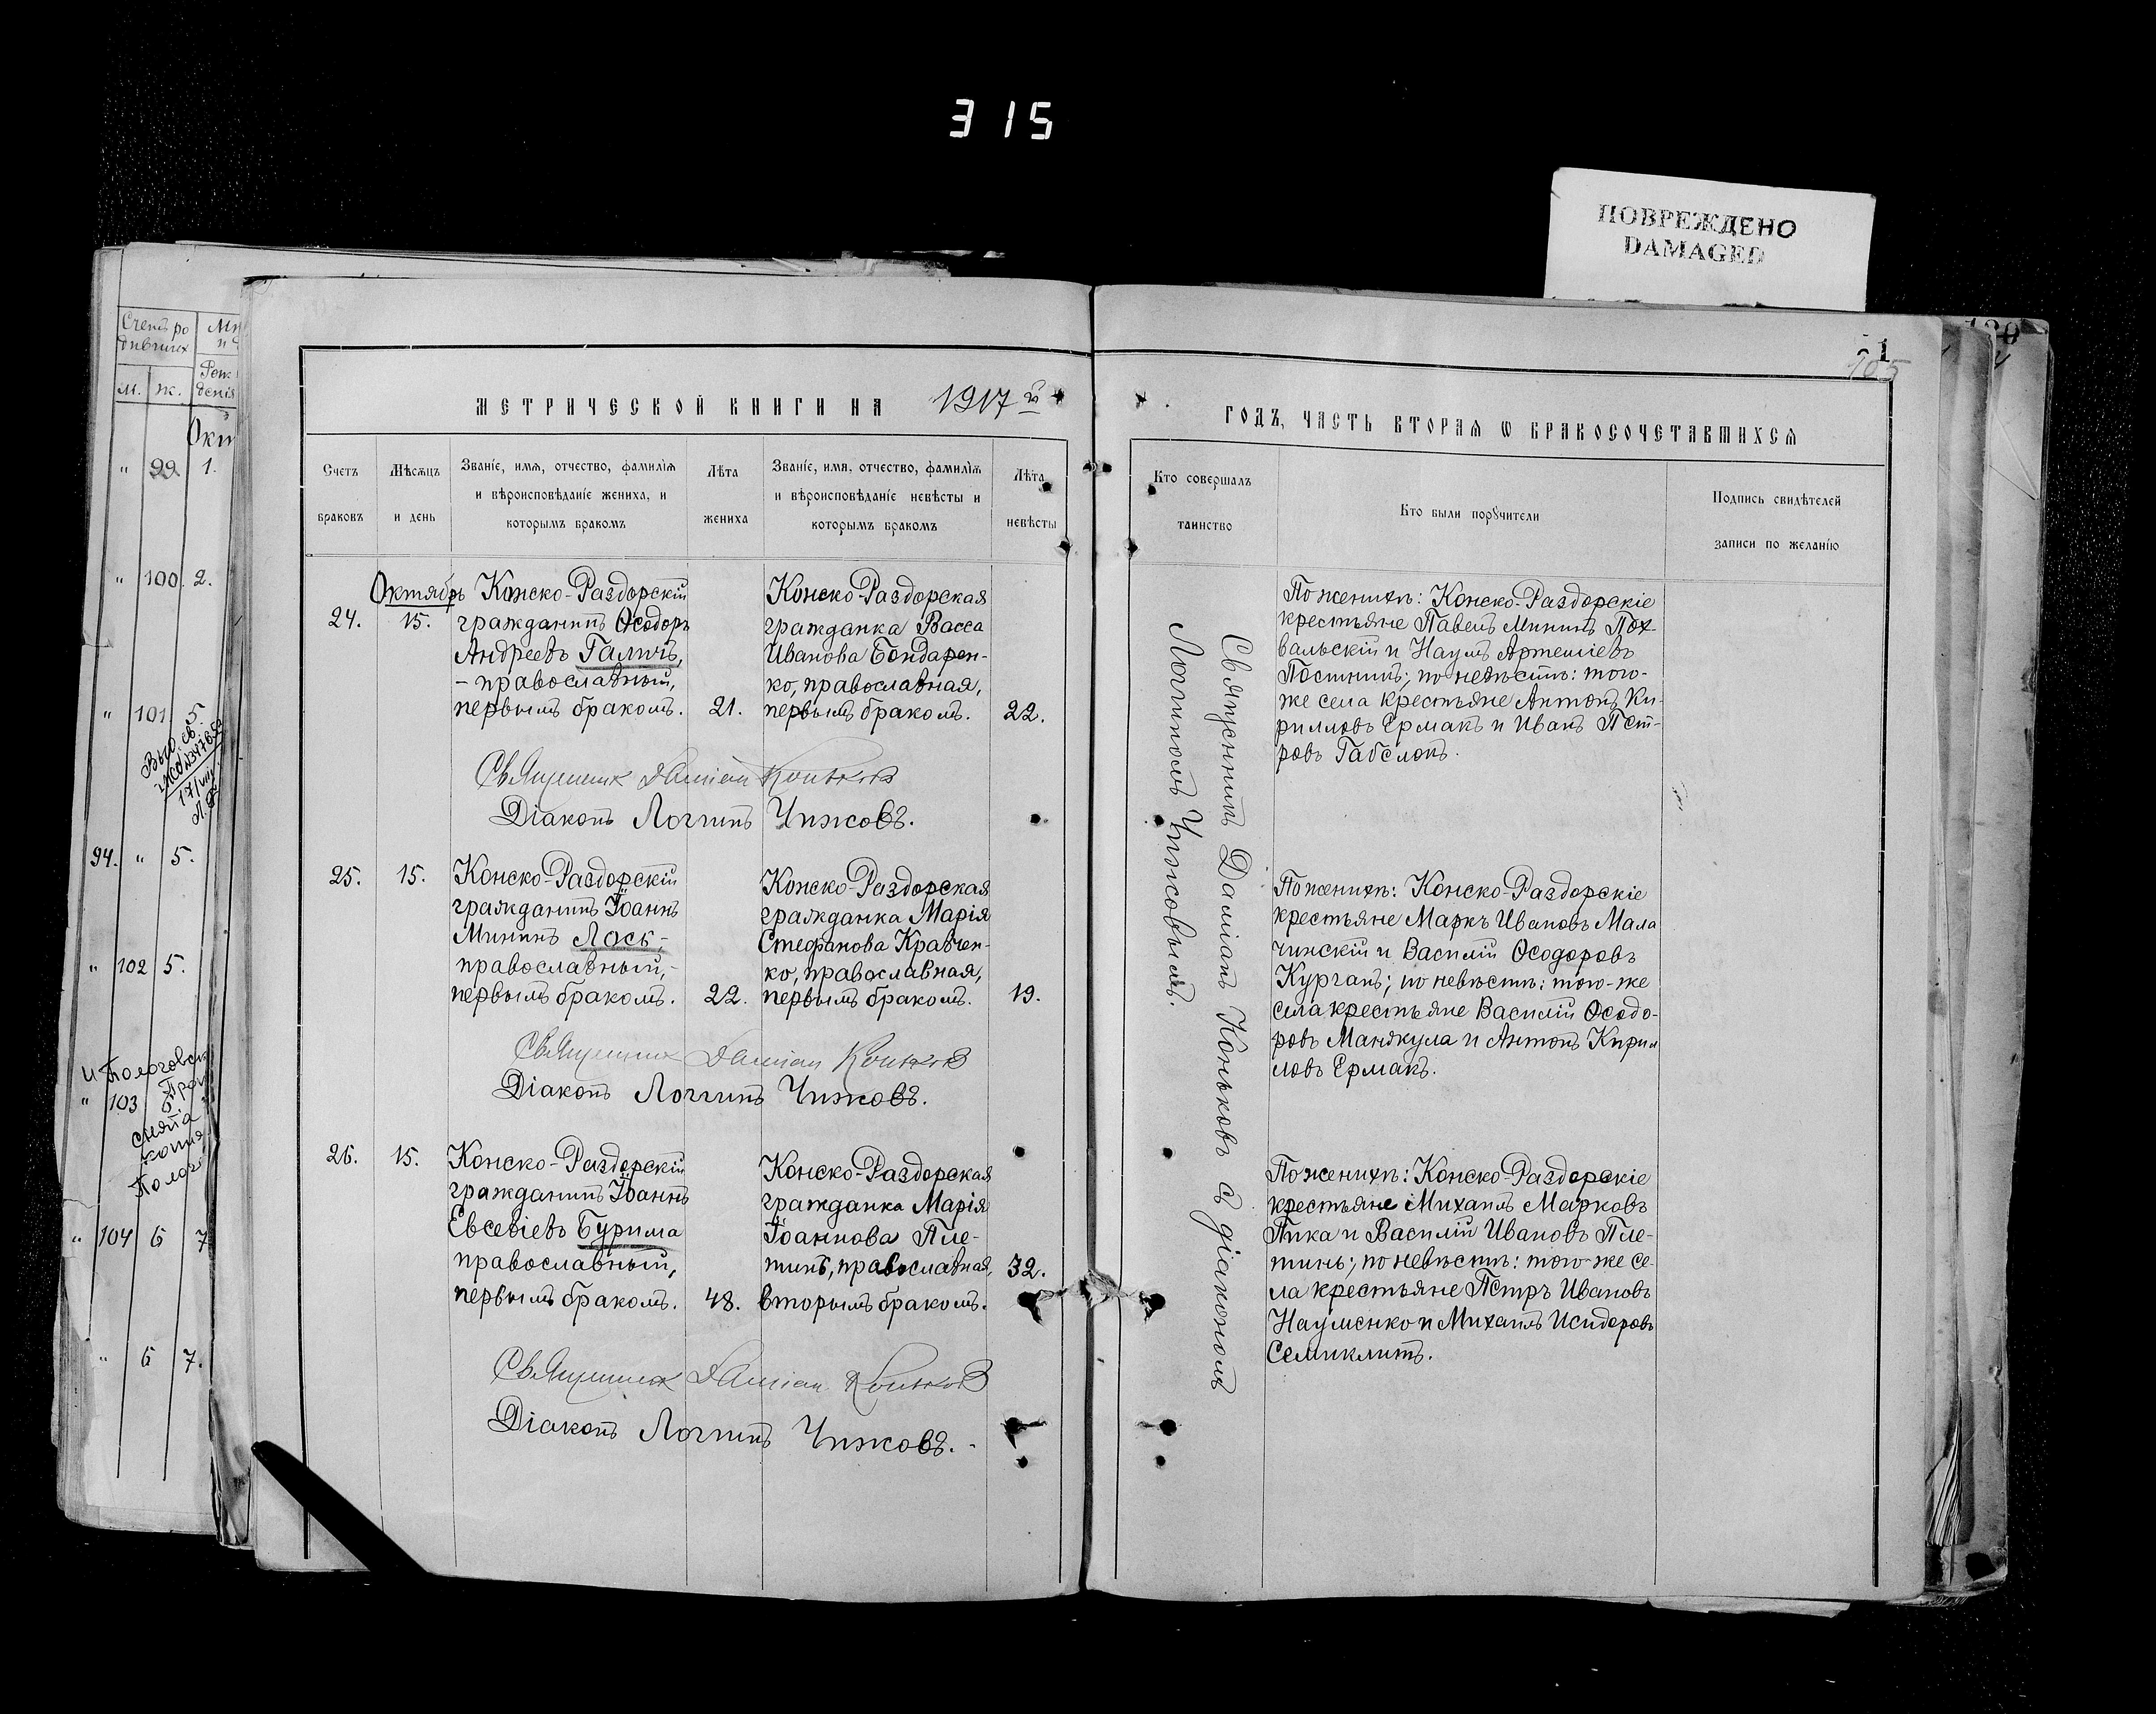 315
ПОВРЕЖДЕНО
DAMAGED
Счетъ ро
дившихъ
м.
ж.
Рож
денія
Окт
" 99 1.
" 100. 2.
" 101. 5.
94. " 5.
" 102 5.
" 103
" 104 6 7
" 6 7.
МЕТРИЧЕСКОЙ КНИГИ НА 1917й
Счетъ
браковъ
Мѣсяцъ
и день
Званіе, имя, отчество, фамилія
и вѣроисповѣданіе жениха, и
которымъ бракомъ
Лѣта
жениха
Званіе, имя, отчество, фамилія
и вѣроисповѣданіе невѣсты и
которымъ бракомъ
Лѣта
невѣсты
24.
Октябрь
15.
Конско-Раздорскій
гражданинъ Ѳеодоръ
Андреевъ Галичъ,
- православный,
первымъ бракомъ.
21.
Конско-Раздорская
гражданка Васса
Иванова Бондарен-
ко, православная,
первымъ бракомъ.
22.
Священникъ Даміан Коньковъ
Діаконъ Логгинъ Чижовъ.
25.
15.
Конско-Раздорскій
гражданинъ Іоаннъ
Мининъ Лось,
православный,
первымъ бракомъ.
22.
Конско-Раздорская
гражданка Марія
Стефанова Кравчен-
ко, православная,
первымъ бракомъ.
19.
Священникъ Даміан Коньковъ
Діаконъ Логгинъ Чижовъ.
26.
15.
Конско-Раздорскій
гражданинъ Іоаннъ
Евсевіевъ Бурима
православный,
первымъ бракомъ.
48.
Конско-Раздорская
гражданка Марія
Іоаннова Пле-
тинь, православная,
вторымъ бракомъ.
32.
Священникъ Даміан Коньковъ
Діаконъ Логгинъ Чижовъ.
105
ГОДЪ, ЧАСТЬ ВТОРАЯ Ѡ БРАКОСОЧЕТАВШИХСЯ
Кто совершалъ
таинство
Кто были поручители
Подпись свидѣтелей
записи по желанію
Священникъ Даміанъ Коньковъ съ діакономъ
Логгиномъ Чижовымъ.
По женихѣ: Конско-Раздорскіе
крестьяне Павелъ Мининъ Пох-
вальскій и Наумъ Артеміевъ
Постнитъ; по невѣстѣ: того-
же села крестьяне Антонъ Ки-
рилловъ Ермакъ и Иванъ Пет-
ровъ Габелокъ.
По женихѣ: Конско-Раздорскіе
крестьяне Маркъ Ивановъ Мала
чинскій и Василій Ѳеодоровъ
Курганъ; по невѣстѣ: того-же
села крестьяне Василій Ѳеодо-
ровъ Манякула и Антонъ Кирил
ловъ Ермакъ.
По женихѣ: Конско-Раздорскіе
крестьяне Михаилъ Марковъ
Пика и Василій Ивановъ Пле-
тинь; по невѣстѣ: того-же се-
ла крестьяне Петръ Ивановъ
Науменко и Михаилъ Исидоровъ
Семиклитъ.